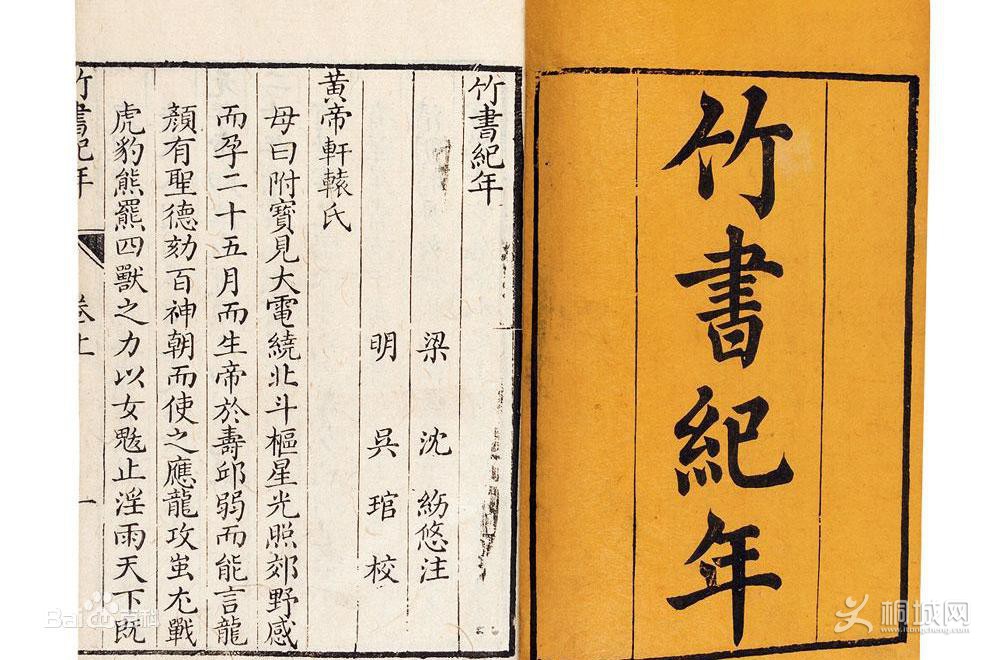 竹書紀年
竹書紀年
梁 沈 約悠注
明 吳 琯 校
黄帝軒轅氏
母曰附寶見大電繞北斗樞星光照郊野感
而孕二十五月而生帝於壽邱弱而能言龍
顏有聖德劾百神朝而使之應龍攻蚩尤戰
虎豹熊羆四獸之力以女魃止淫雨天下既
竹書紀年
卷上
一
Bai百科
桐城网
www.tongcheng.com